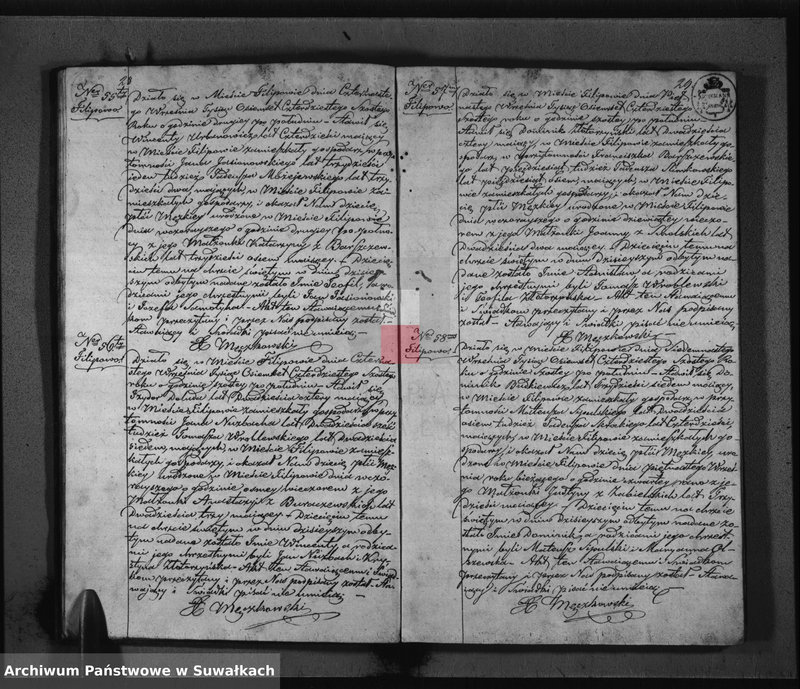 28
Nro 55ty
Filipowo.
Działo się w Mieście Filipowie dnia Czternaste-
go Września Tysiąc Ośmset Czterdziestego Szóstego
Roku o godzinie drugiej po południu – Stawił się
Wincenty Urbanowicz lat Czterdzieści mający
w Mieście Filipowie zamieszkały gospodarz, w przy-
tomności Jana Jasionowskiego lat trzydzieści
jeden tudzież Tadeusza lat trzy-
dzieści dwa mających, w Mieście Filipowie za-
mieszkałych gospodarzy, i okazał Nam dziecię
płci Męzkiej urodzone w Mieście Filipowie
dnia wczorajszego o godzinie drugiej po połu-
z jego Małżonki Katarzyny z Barszczew-
skich lat trzydzieści ośm mającej – Dziecię-
ciu temu na chrzcie świętym w dniu dzisiej-
szym odbytym nadane zostało Imie Teofil, a ro-
dzicami jego chrzestnymi byli Jan Jasionowski
i Jozefa – Akt ten Stawającemu i Świad-
kom przeczytany i przez Nas podpisany został –
Stawający i Świadki pisać nie umieją –
X Męczkowski
Nro 56ty
Filipowo.
Działo się w Mieście Filipowie dnia Czterna-
stego Września Tysiąc Ośmset Czterdziestego Szóstego
roku o godzinie szóstej po południu – Stawił się
Izydor lat Dwadzieścia cztery mający
w Mieście Filipowie zamieszkały gospodarz, w przy-
tomności Jana lat Dwadzieścia sześć
tudzież Tomasza Wroblewskiego lat Dwadzieścia
siedem mających, w Mieście Filipowie zamiesz-
kałych gospodarzy, i okazał Nam dziecię płci Męz-
kiej urodzone w Mieście Filipowie dnia wczo-
rajszego o godzinie osmej wieczorem z jego
Małżonki z lat
Dwadzieścia trzy mającej – Dziecięciu temu
na chrzcie świętym w dniu dzisiejszym odby-
tym nadane zostało Imie Wincenty, a rodzica-
mi jego chrzestnymi byli Jan i Kry-
styna – Akt ten Stawającemu i Świad-
kom przeczytany i przez Nas podpisany został – Sta-
wający i Świadki pisać nie umieją –
X Męczkowski
29
Nro 57my
Filipowo.
Działo się w Mieście Filipowie dnia
nastego Września Tysiąc Ośmset Czterdziestego
szóstego roku o godzinie szóstej po południu –
Stawił się Dominik lat Dwadzieścia
cztery mający, w Mieście Filipowie zamieszkały gos-
podarz, w przytomności Franciszka Barszczewskie-
go lat pięćdziesiąt tudzież Tadeusza
lat pięćdziesiąt ośm mających, w Mieście Filipo-
wie zamieszkałych gospodarzy, i okazał Nam dzie-
cię płci Męzkiej urodzone w Mieście Filipowie
dnia wczorajszego o godzinie dziewiątej wieczo-
rem z jego Małżonki Joanny z lat
Dwadzieścia dwa mającej – Dziecięciu temu na
chrzcie świętym w dniu dzisiejszym odbytym na-
dane zostało Imie Stanisław, a rodzicami
jego chrzestnymi byli Tomasz Wroblewski
i Teofila – Akt ten Stawającemu
i Świadkom przeczytany i przez Nas podpisany
został – Stawający i Świadki pisać nie umieją –
X Męczkowski
Nro 58my
Filipowo.
Działo się w Mieście Filipowie dnia Siedemnastego
Września Tysiąc Ośmset Czterdziestego Szóstego Ro-
ku o godzinie szóstej po południu – Stawił się Do-
minik lat trzydzieści siedem mający,
w Mieście Filipowie zamieszkały gospodarz, w przy-
tomności Mateusza lat Dwadzieścia
ośm tudzież Tadeusza lat Czterdzieści
mających, w Mieście Filipowie zamieszkałych go-
spodarzy, i okazał Nam dziecię płci Męzkiej, uro-
dzone w Mieście Filipowie dnia piętnastego Wrze-
śnia roku bieżącego o godzinie czwartej rano z je-
go Małżonki Justyny z lat Trzy-
dzieści mającej – Dziecięciu temu na chrzcie
świętym w dniu dzisiejszym odbytym nadane zo-
stało Imie Dominik, a rodzicami jego chrzest-
nymi byli Mateusz i Maryanna Ol-
szewska – Akt ten Stawającemu i Świadkom
przeczytany i przez Nas podpisany został – Stawa-
jący i Świadki pisać nie umieją –
X Męczkowski
Archiwum Państwowe w Suwałkach